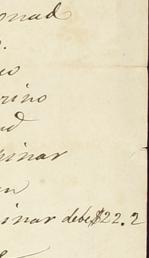 onad
o.
eo
rino
ad
pinar
en
inar debe $22.2